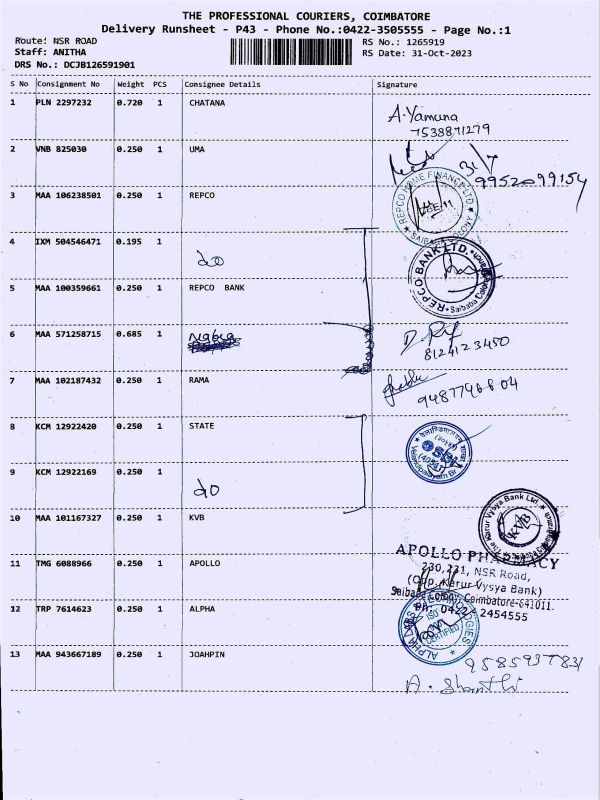 THE PROFESSIONAL COURIERS, COIMBATORE
Delivery Runsheet - P43 - Phone No.:0422-3505555 - Page No.:1
Route: NSR ROAD
Staff: ANITHA
DRS No.: DCJB126591901
RS No.: 1265919
RS Date: 31-Oct-2023
S No Consignment No Weight PCS Consignee Details Signature
1 PLN 2297232 0.720 1 CHATANA A.Yamuna
7538871279
2 VNB 825030 0.250 1 UMA
9952099154
3 MAA 106238501 0.250 1 REPCO REPCO HOME FINANCE LTD
4 IXM 504546471 0.195 1
do
REPCO BANK LTD. Saibaba Colony
5 MAA 100359661 0.250 1 REPCO BANK
6 MAA 571258715 0.685 1
8124123450
7 MAA 102187432 0.250 1 RAMA
8 KCM 12922420 0.250 1 STATE
SBI
9 KCM 12922169 0.250 1
do
10 MAA 101167327 0.250 1 KVB The Karur Vysya Bank Ltd
KVB
11 TMG 6088966 0.250 1 APOLLO APOLLO PHARMACY
230,231, NSR Road,
(Opp. Karur Vysya Bank)
Saibaba Colony, Coimbatore-641011.
Ph: 0422 - 2454555
12 TRP 7614623 0.250 1 ALPHA
ISO CERTIFIED
13 MAA 943667189 0.250 1 JOAHPIN
A. Shanthi